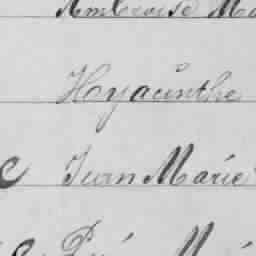 Ambroise Ma
Hyacinthe
Jean Marie